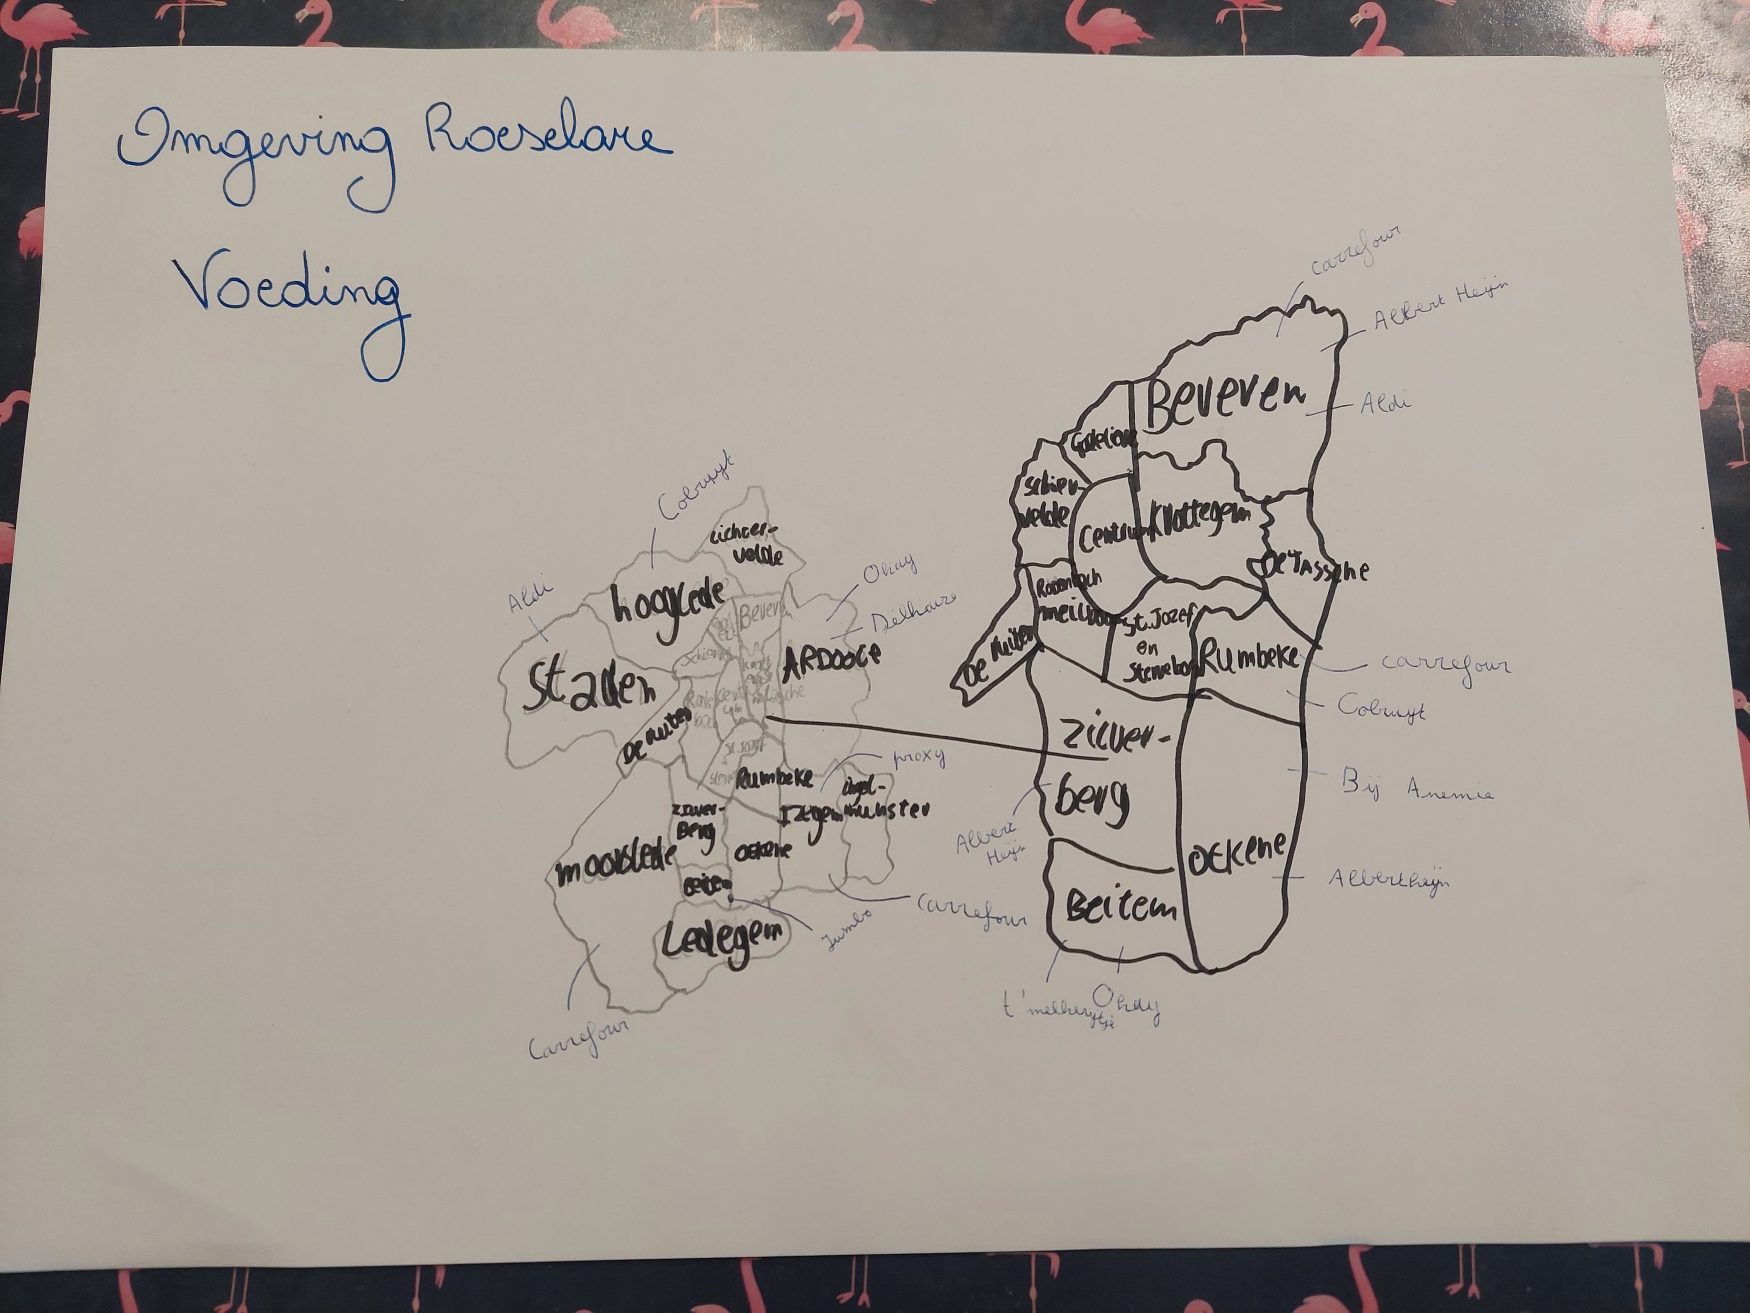 Omgeving Roeselare
Voeding
Carrefour
Albert Heijn
Aldi
Beveren
Schier-
velde
Centrum
Krottegem
De Tassche
De Ruiter
St. Jozef
en
Rumbeke
Carrefour
Cobruyt
Zilver-
berg
Bij Anemie
Albert
Heijn
Oekene
Albertheijn
Beitem
Okay
Cobruyt
Lichter-
velde
Aldi
hooglede
Okay
Delhaize
Beveren
ARDOOIE
Staden
De Ruiter
St. Jozef
Rumbeke
proxy
Izegem
munster
Zilver-
Berg
moorslede
Oekene
Beitem
Ledegem
Jumbo
Carrefour
Carrefour